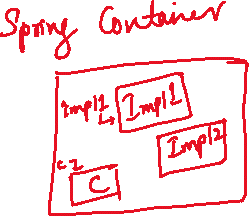 Spring Container
Impl1
Impl1
Impl2
c1
C